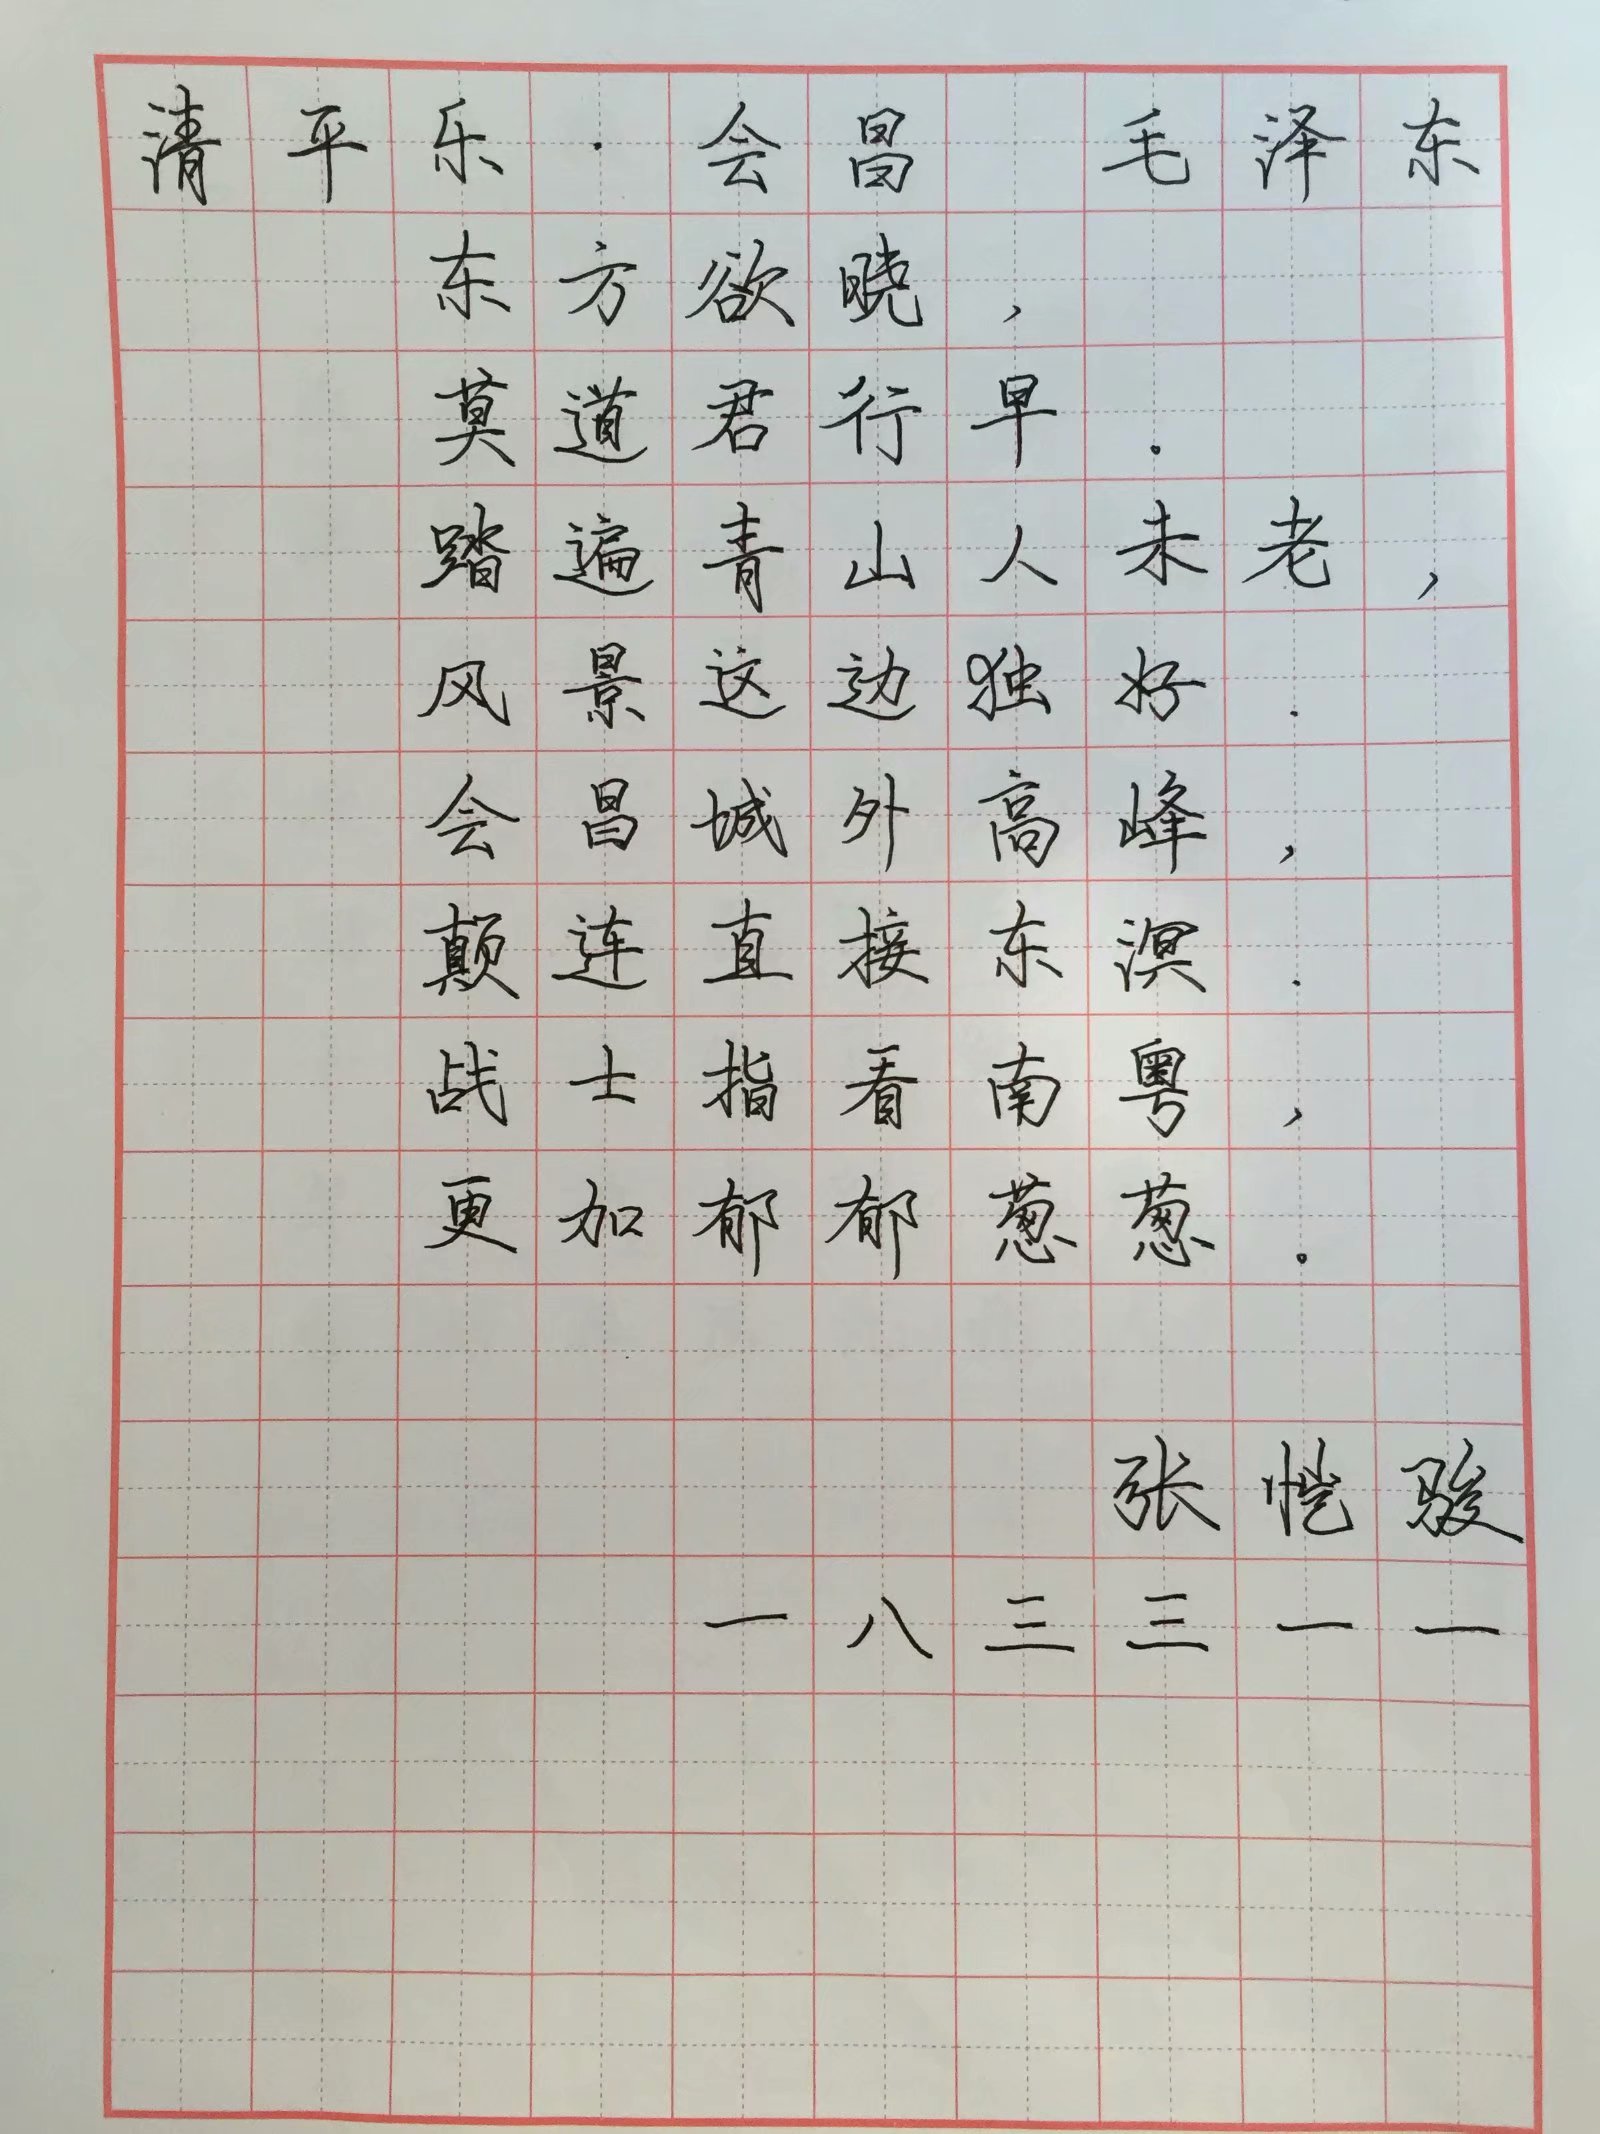 清平乐·会昌 毛泽东
东方欲晓,
莫道君行早.
踏遍青山人未老,
风景这边独好.
会昌城外高峰,
颠连直接东溟.
战士指看南粤,
更加郁郁葱葱.
张恺骏
一八三三一一